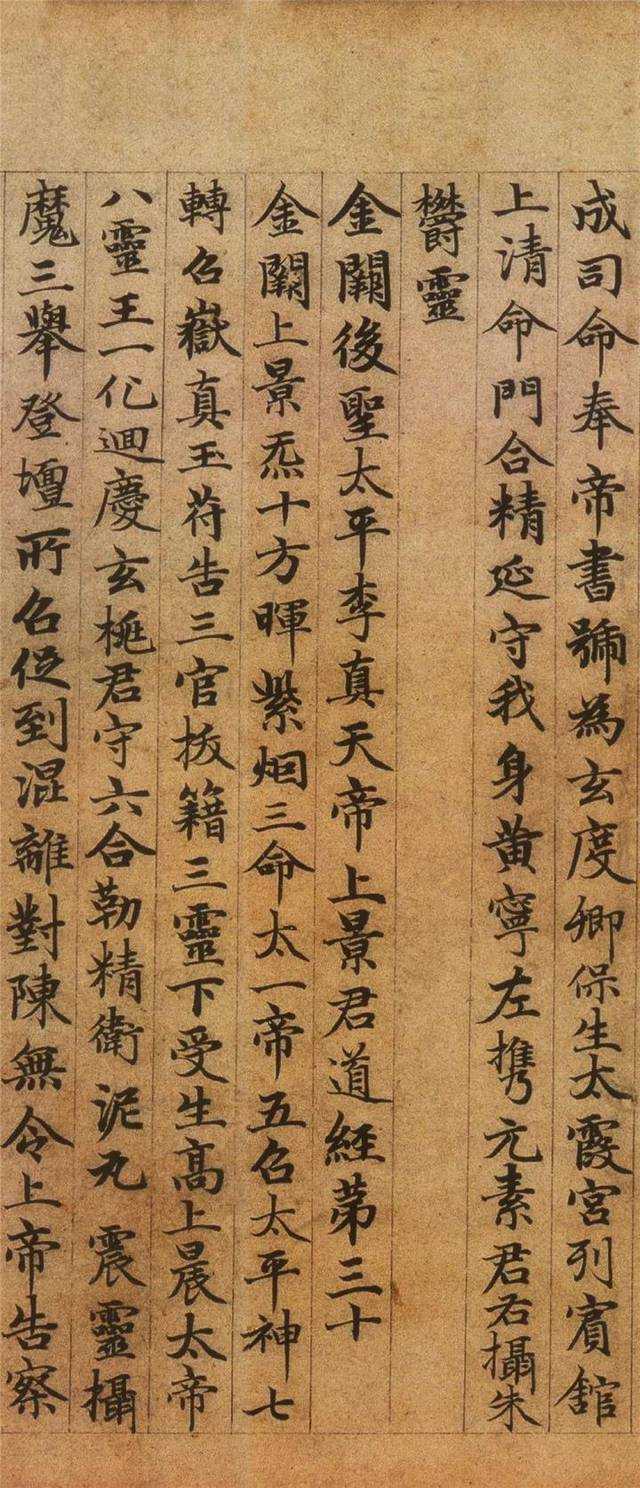 成司命奉帝書號為玄度卿保生太霞宮列賓舘
上清命門合精延守我身黄寧左携元素君右攝朱
欝靈
金闕後聖太平李真天帝上景君道經苐三十
金闕上景炁十方暉紫烟三命太一帝五召太平神七
轉召嶽真玉苻告三官拔籍三靈下受生髙上晨太帝
八靈王一化迴慶玄桃君守六合勒精衛泥丸震靈攝
魔三舉登壇所召促到混離對陳無令上帝告察